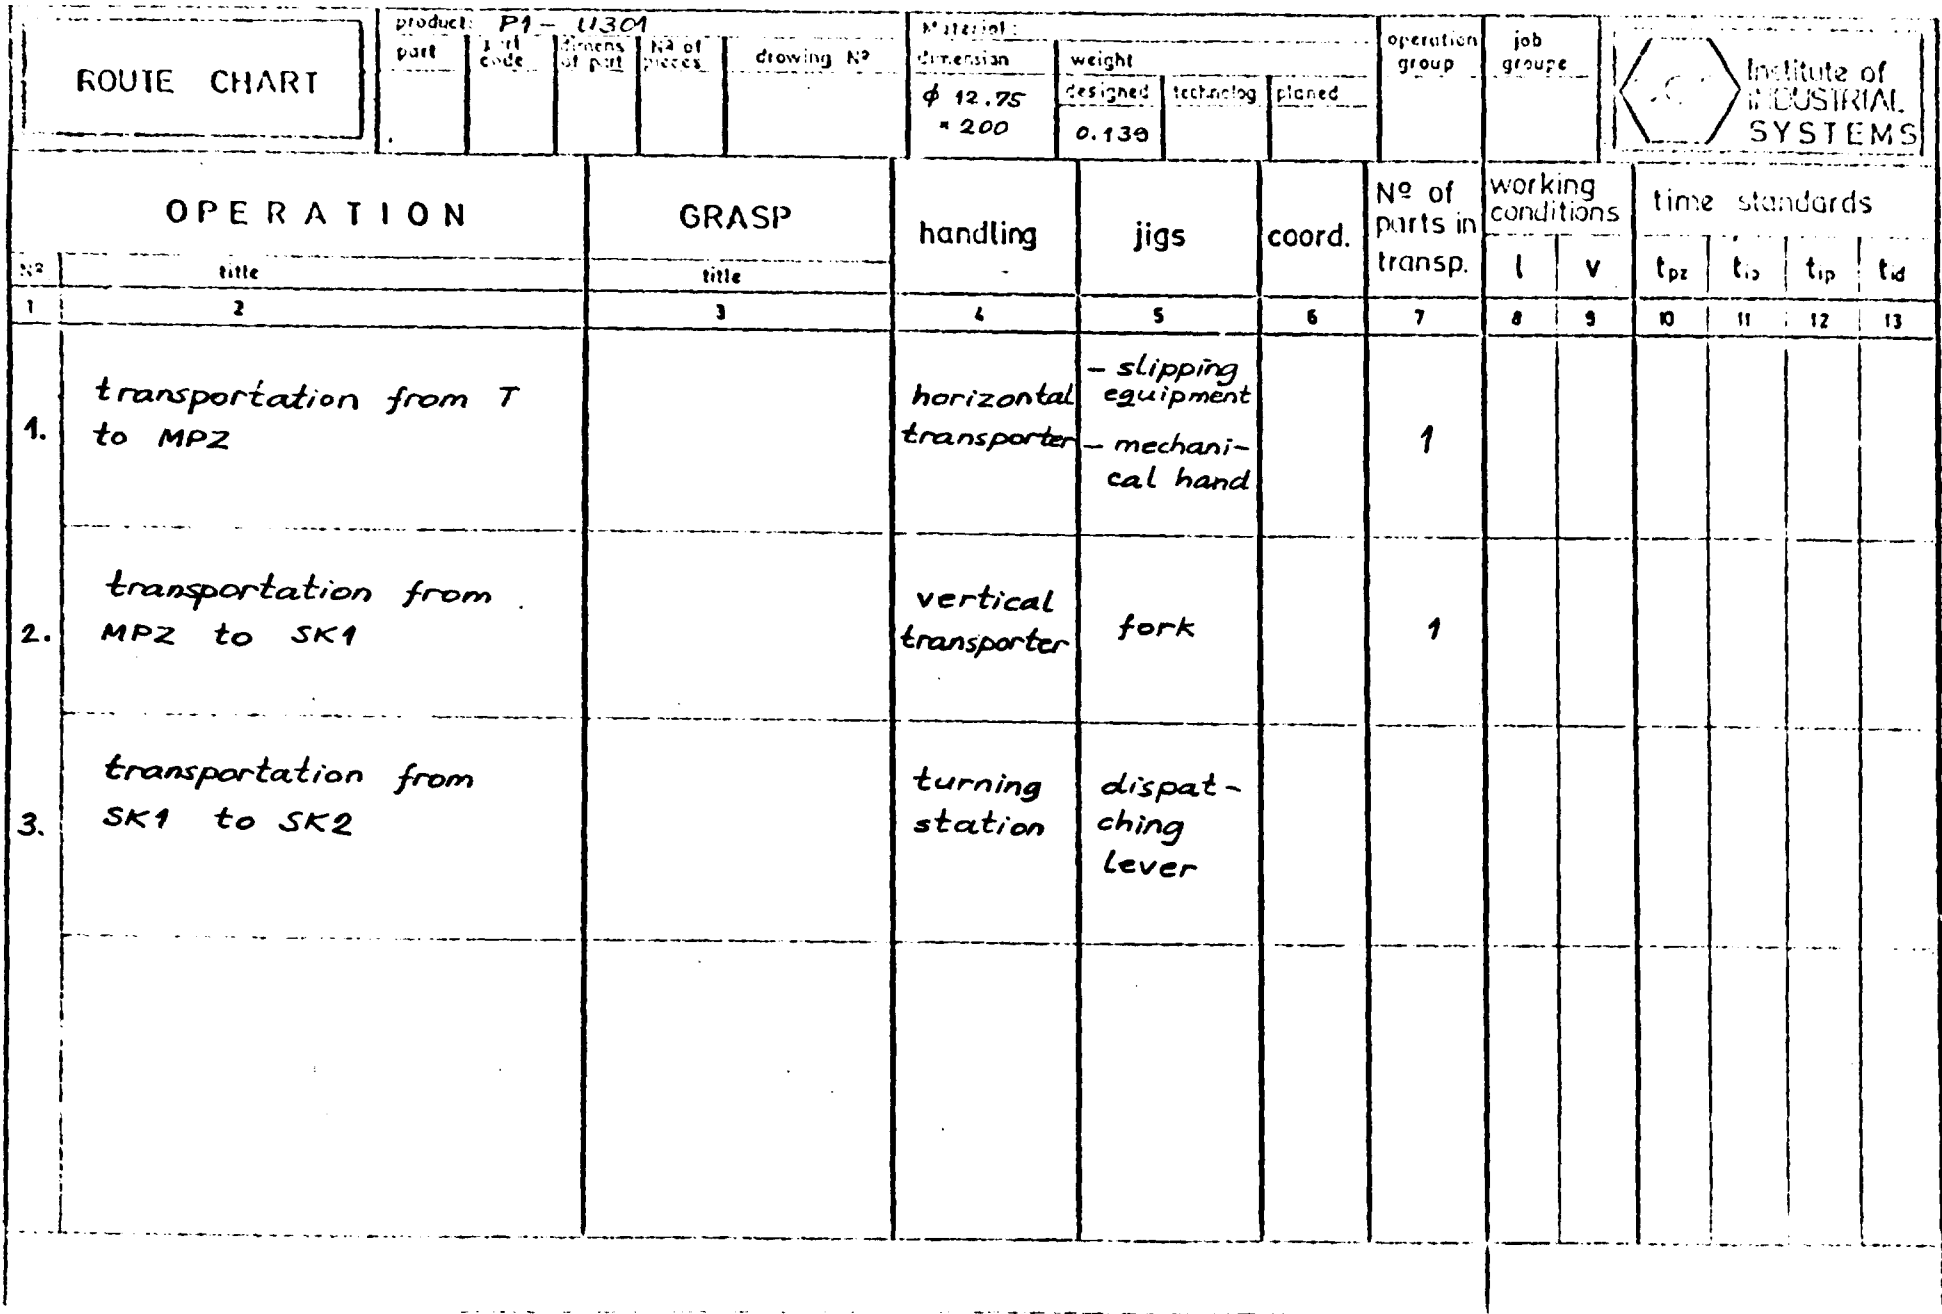 ROUTE CHART
product: P1 - U301
part
code
dimens of part
Nº of pieces
drowing Nº
Material:
dimension
φ 12.75
× 200
weight
designed
technolog
planed
0.139
operation group
job groupe
Institute of
INDUSTRIAL
SYSTEMS
OPERATION
GRASP
handling
jigs
coord.
Nº of
parts in
transp.
working
conditions
time standards
Nº
title
title
l
v
tpz
tip
tid
1 2 3 4 5 6 7 8 9 10 11 12 13
1.
transportation from T
to MPZ
horizontal
transporter
- slipping
equipment
- mechani-
cal hand
1
2.
transportation from
MPZ to SK1
vertical
transporter
fork
1
3.
transportation from
SK1 to SK2
turning
station
dispat-
ching
lever